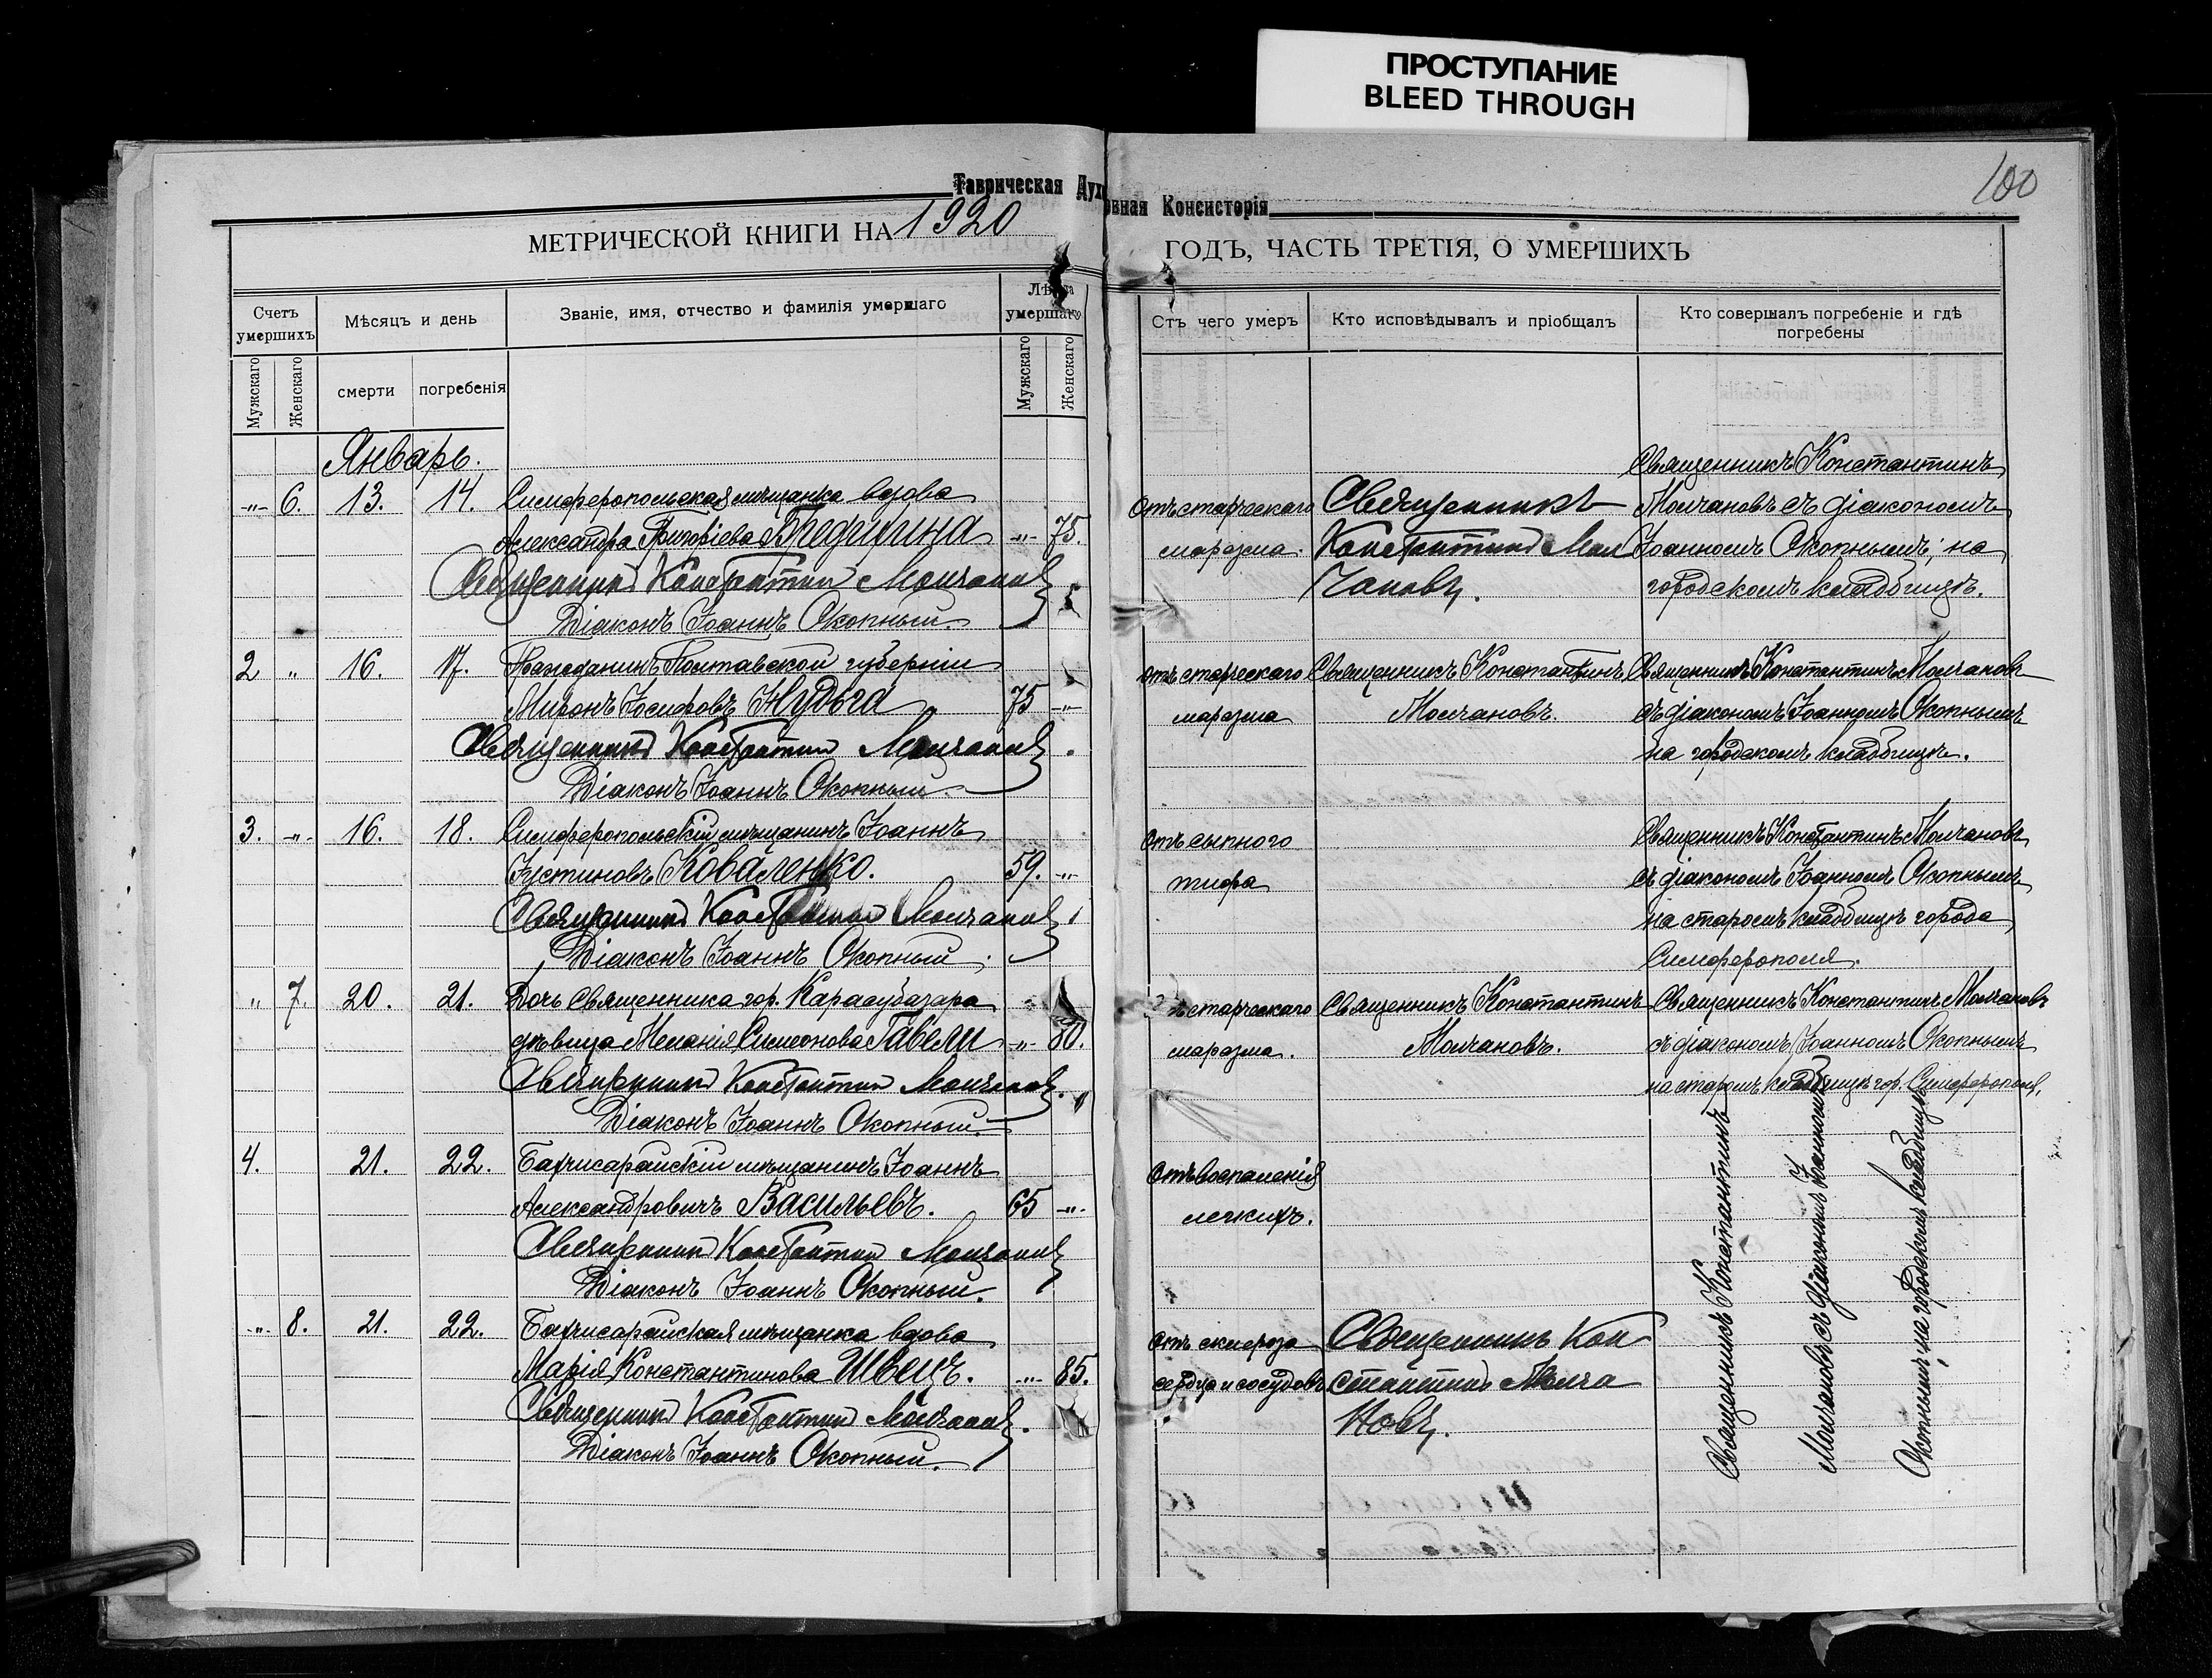 ПРОСТУПАНИЕ
BLEED THROUGH
100
Таврическая Духовная Консисторія
МЕТРИЧЕСКОЙ КНИГИ НА 1920 ГОДЪ, ЧАСТЬ ТРЕТІЯ, О УМЕРШИХЪ
Счетъ умершихъ
Мужскаго
Женскаго
Мѣсяцъ и день
смерти
погребенія
Званіе, имя, отчество и фамилія умершаго
Лѣта умершаго
Мужскаго
Женскаго
Отъ чего умеръ
Кто исповѣдывалъ и пріобщалъ
Кто совершалъ погребеніе и гдѣ погребены
Январь.
-"- 6. 13. 14. Симферопольская мѣщанка вдова
Александра Григоріева -"- 75.
Священникъ Константинъ Молчановъ
Діаконъ Іоаннъ Окопный.
Отъ старческаго
маразма.
Священникъ
Константинъ Мол
чановъ.
Священникъ Константинъ
Молчановъ съ діакономъ
Іоанномъ Окопнымъ, на
городскомъ кладбищѣ.
2 " 16. 17. Гражданинъ Полтавской губерніи
Миронъ Іосифовъ Нудьга 75 -"-
Священникъ Константинъ Молчановъ
Діаконъ Іоаннъ Окопный.
Отъ старческаго
маразма
Священникъ Константинъ
Молчановъ.
Священникъ Константинъ Молчановъ
съ діакономъ Іоанномъ Окопнымъ
на городскомъ кладбищѣ.
3. -"- 16. 18. Симферопольскій мѣщанинъ Іоаннъ
Іустиновъ Коваленко. 59. -"-
Священникъ Константинъ Молчановъ
Діаконъ Іоаннъ Окопный.
Отъ сыпного
тифа
Священникъ Константинъ Молчановъ
съ діакономъ Іоанномъ Окопнымъ
на старомъ кладбищѣ города
Симферополя.
" 7. 20. 21. Дочь священника гор. Карасубазара
дѣвица Меланія Симеонова Гавели -"- 80.
Священникъ Константинъ Молчановъ
Діаконъ Іоаннъ Окопный.
старческаго
маразма.
Священникъ Константинъ
Молчановъ.
Священникъ Константинъ Молчановъ
съ діакономъ Іоанномъ Окопнымъ
на старомъ кладбищѣ гор. Симферополя.
4. 21. 22. Бахчисарайскій мѣщанинъ Іоаннъ
Александровичъ Васильевъ. 65 -"-
Священникъ Константинъ Молчановъ
Діаконъ Іоаннъ Окопный.
Отъ воспаленія
легкихъ.
-"- 8. 21. 22. Бахчисарайская мѣщанка вдова
Марія Константинова Швецъ. -"- 85.
Священникъ Константинъ Молчановъ
Діаконъ Іоаннъ Окопный.
Отъ склероза
сердца и сосудовъ
Священникъ Кон-
стантинъ Молча
новъ.
Священникъ Константинъ
Молчановъ съ діакономъ Іоанномъ
Окопнымъ, на городскомъ кладбищѣ